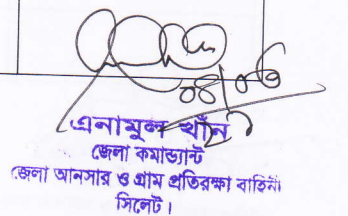 ০৪/০৬
এনামুল খাঁন
জেলা কমান্ড্যান্ট
জেলা আনসার ও গ্রাম প্রতিরক্ষা বাহিনী
সিলেট।